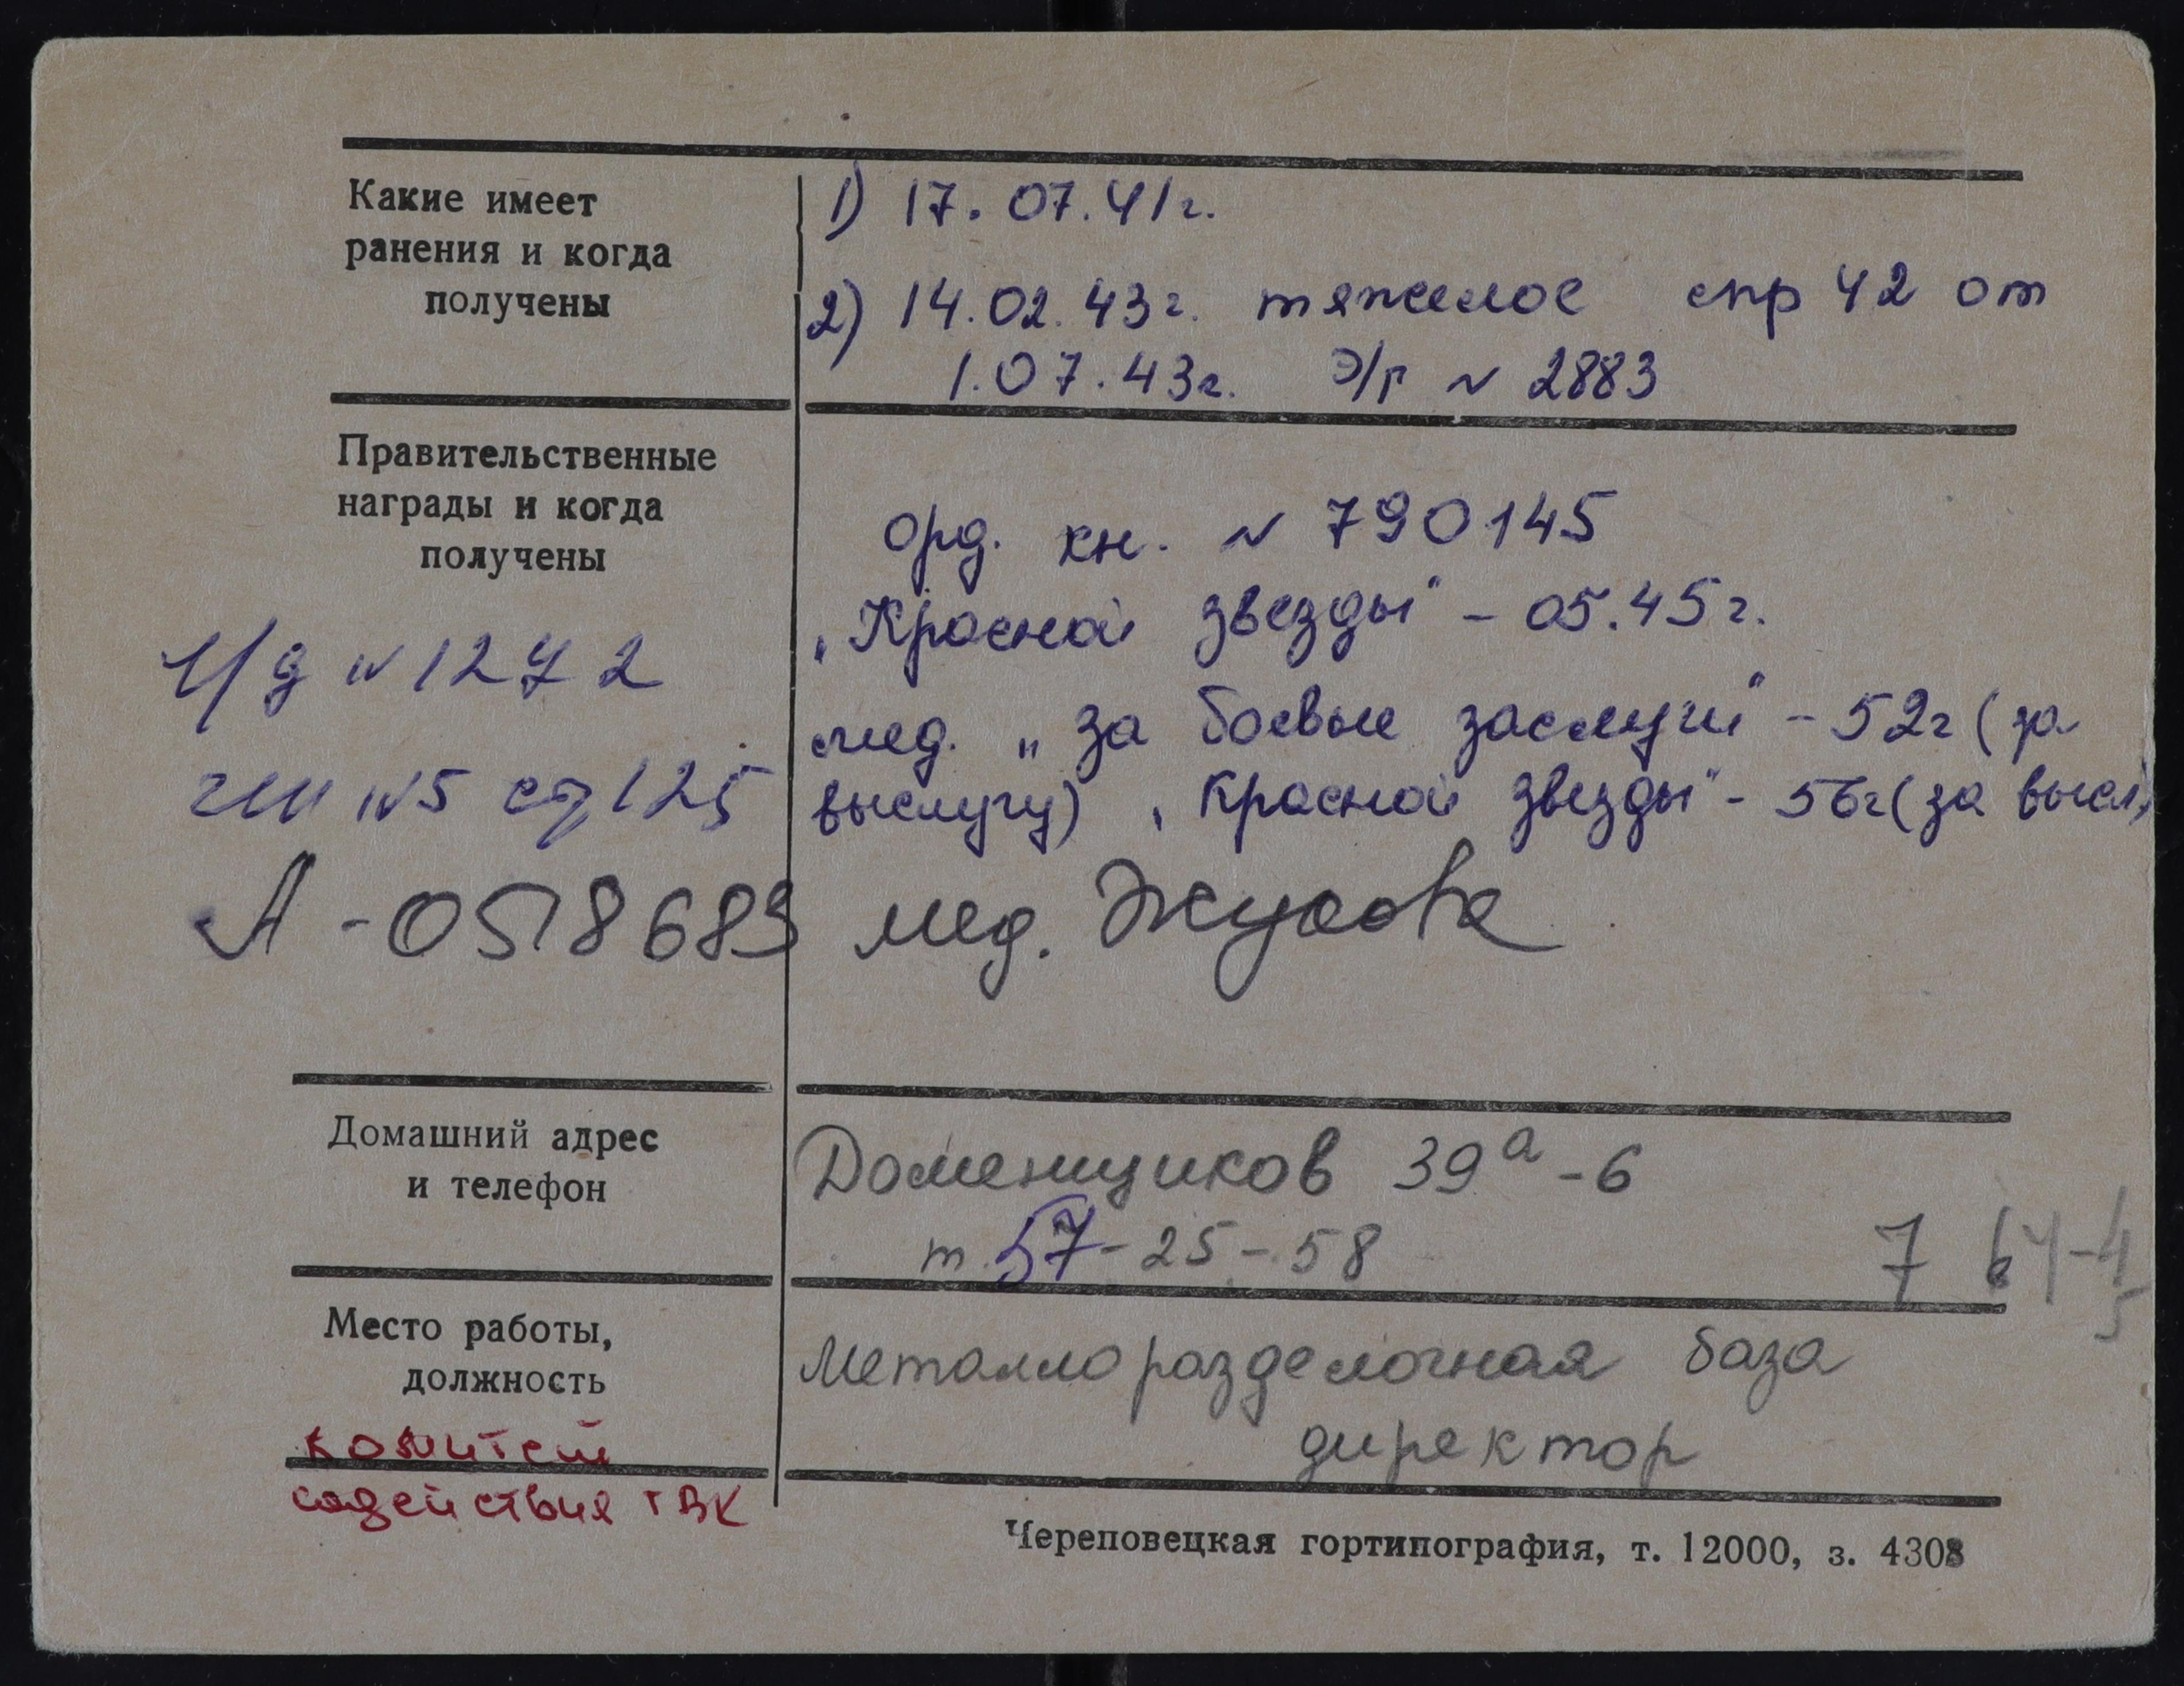 Какие имеет
ранения и когда
получены
1) 17.07.41г.
2) 14.02.43г. тяжелое спр 42 от
1.07.43г. Э/г № 2883
Правительственные
награды и когда
получены
орд. кн. № 790145
„Красной звезды" - 05.45г.
мед. „за боевые заслуги" - 52г (за
выслугу) „Красной звезды" - 56г (за высл)
И/д № 1272
№5 125
А - 0518689 мед. Жукова
Домашний адрес
и телефон
Доменщиков 39а - 6
т. 57-25-58
7 64-4
5
Место работы,
должность
Металлоразделочная база
директор
комитет
содействия ГВК
Череповецкая гортипография, т. 12000, з. 4308